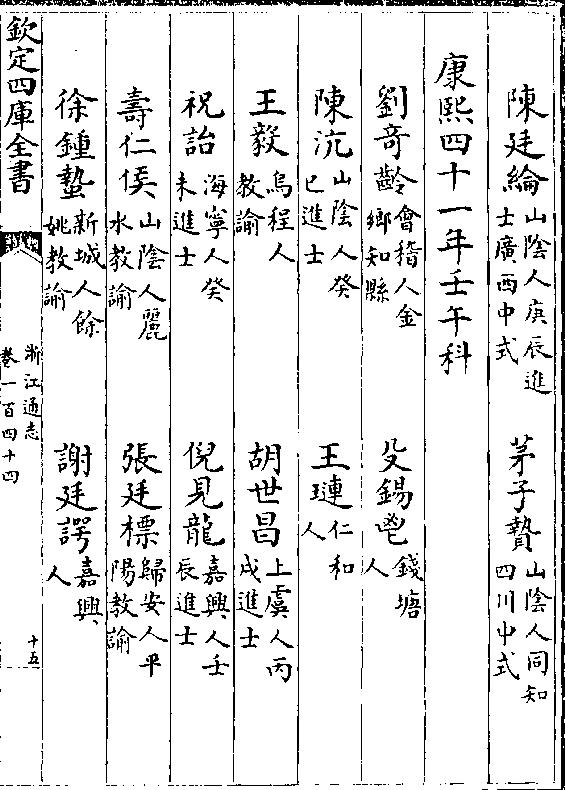 陳廷綸 山陰人庚辰進士廣西中式 茅子贄 山陰人同知四川中式
康熙四十一年壬午科
劉奇齡 會稽人金鄉知縣 殳錫鬯 錢塘人
陳沆 山陰人癸巳進士 王璉 仁和人
王毅 烏程人教諭 胡世昌 上虞人丙戌進士
祝詒 海寧人癸未進士 倪見龍 嘉興人壬辰進士
壽仁侯 山陰人麗水教諭 張廷標 歸安人平陽教諭
徐鍾蟄 新城人餘姚教諭 謝廷諤 嘉興人
欽定四庫全書 浙江通志 卷一百四十四 十五